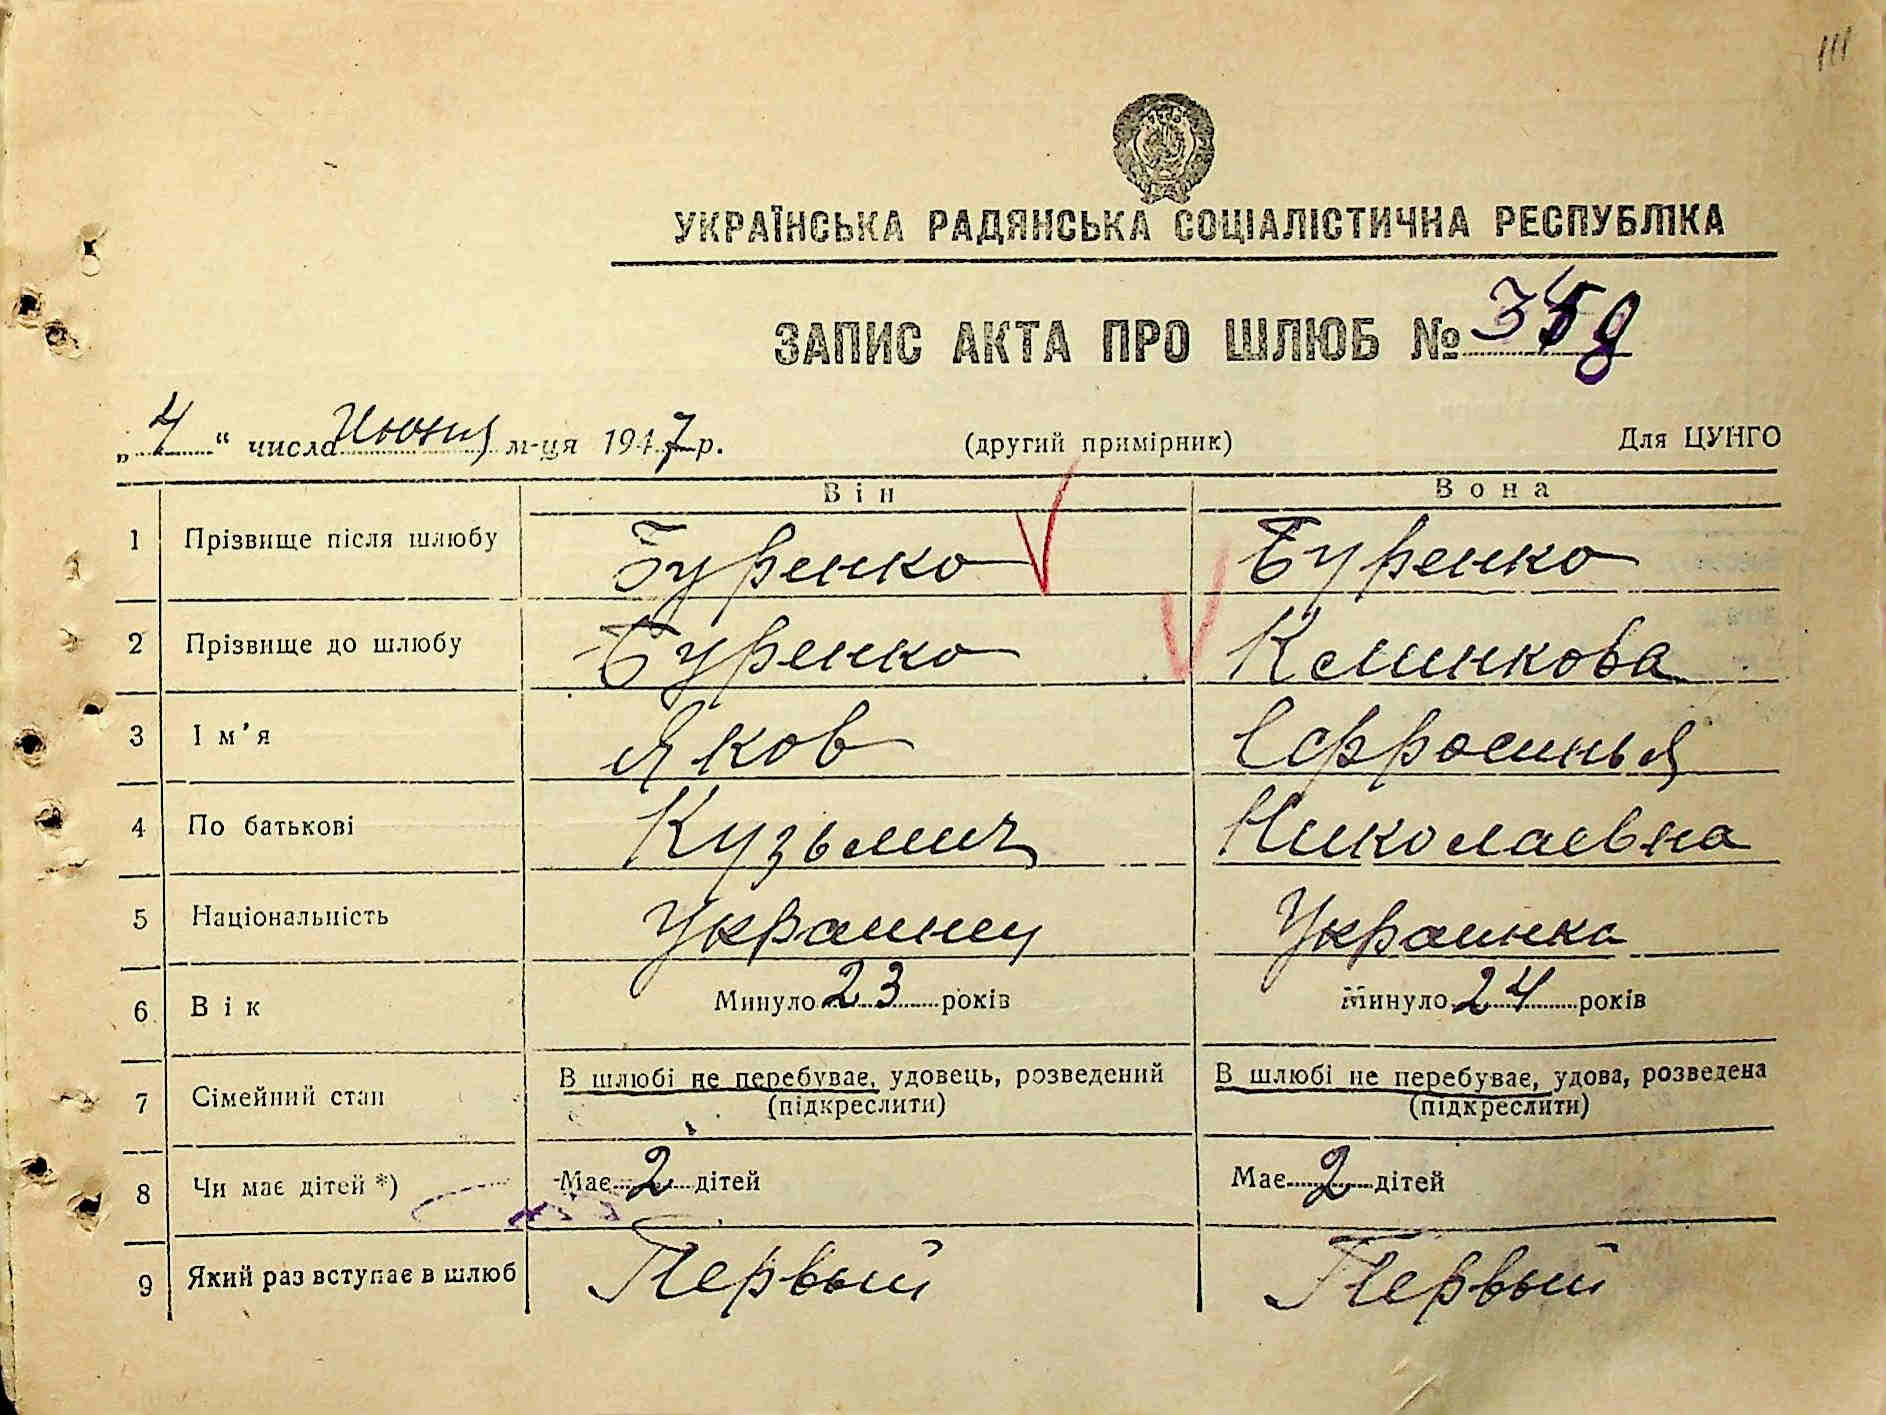 111
УКРАЇНСЬКА РАДЯНСЬКА СОЦІАЛІСТИЧНА РЕСПУБЛІКА
ЗАПИС АКТА ПРО ШЛЮБ №
„ 4 “ числа Июня м-ця 1947 р. (другий примірник) Для ЦУНГО
Він Вона
1 Прізвище після шлюбу Буренко Буренко
2 Прізвище до шлюбу Буренко Клинкова
3 Ім’я Яков Єфросинья
4 По батькові Кузьмич Николаевна
5 Національність Украинец Украинка
6 Вік Минуло 23 років Минуло 24 років
7 Сімейний стан В шлюбі не перебуває, удовець, розведений В шлюбі не перебуває, удова, розведена
(підкреслити) (підкреслити)
8 Чи має дітей *) Має 2 дітей Має 2 дітей
9 Який раз вступає в шлюб Первый Первый